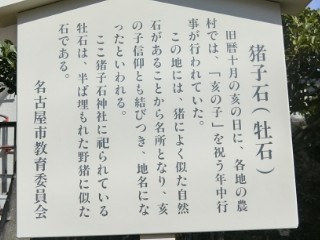 猪子石(牡石)
旧暦十月の亥の日に、各地の農
村では、「亥の子」を祝う年中行
事が行われていた。
この地には、猪によく似た自然
石があることから名所となり、亥
の子信仰とも結びつき、地名にな
ったといわれる。
ここ猪子石神社に祀られている
牡石は、半ば埋もれた野猪に似た
石である。
名古屋市教育委員会